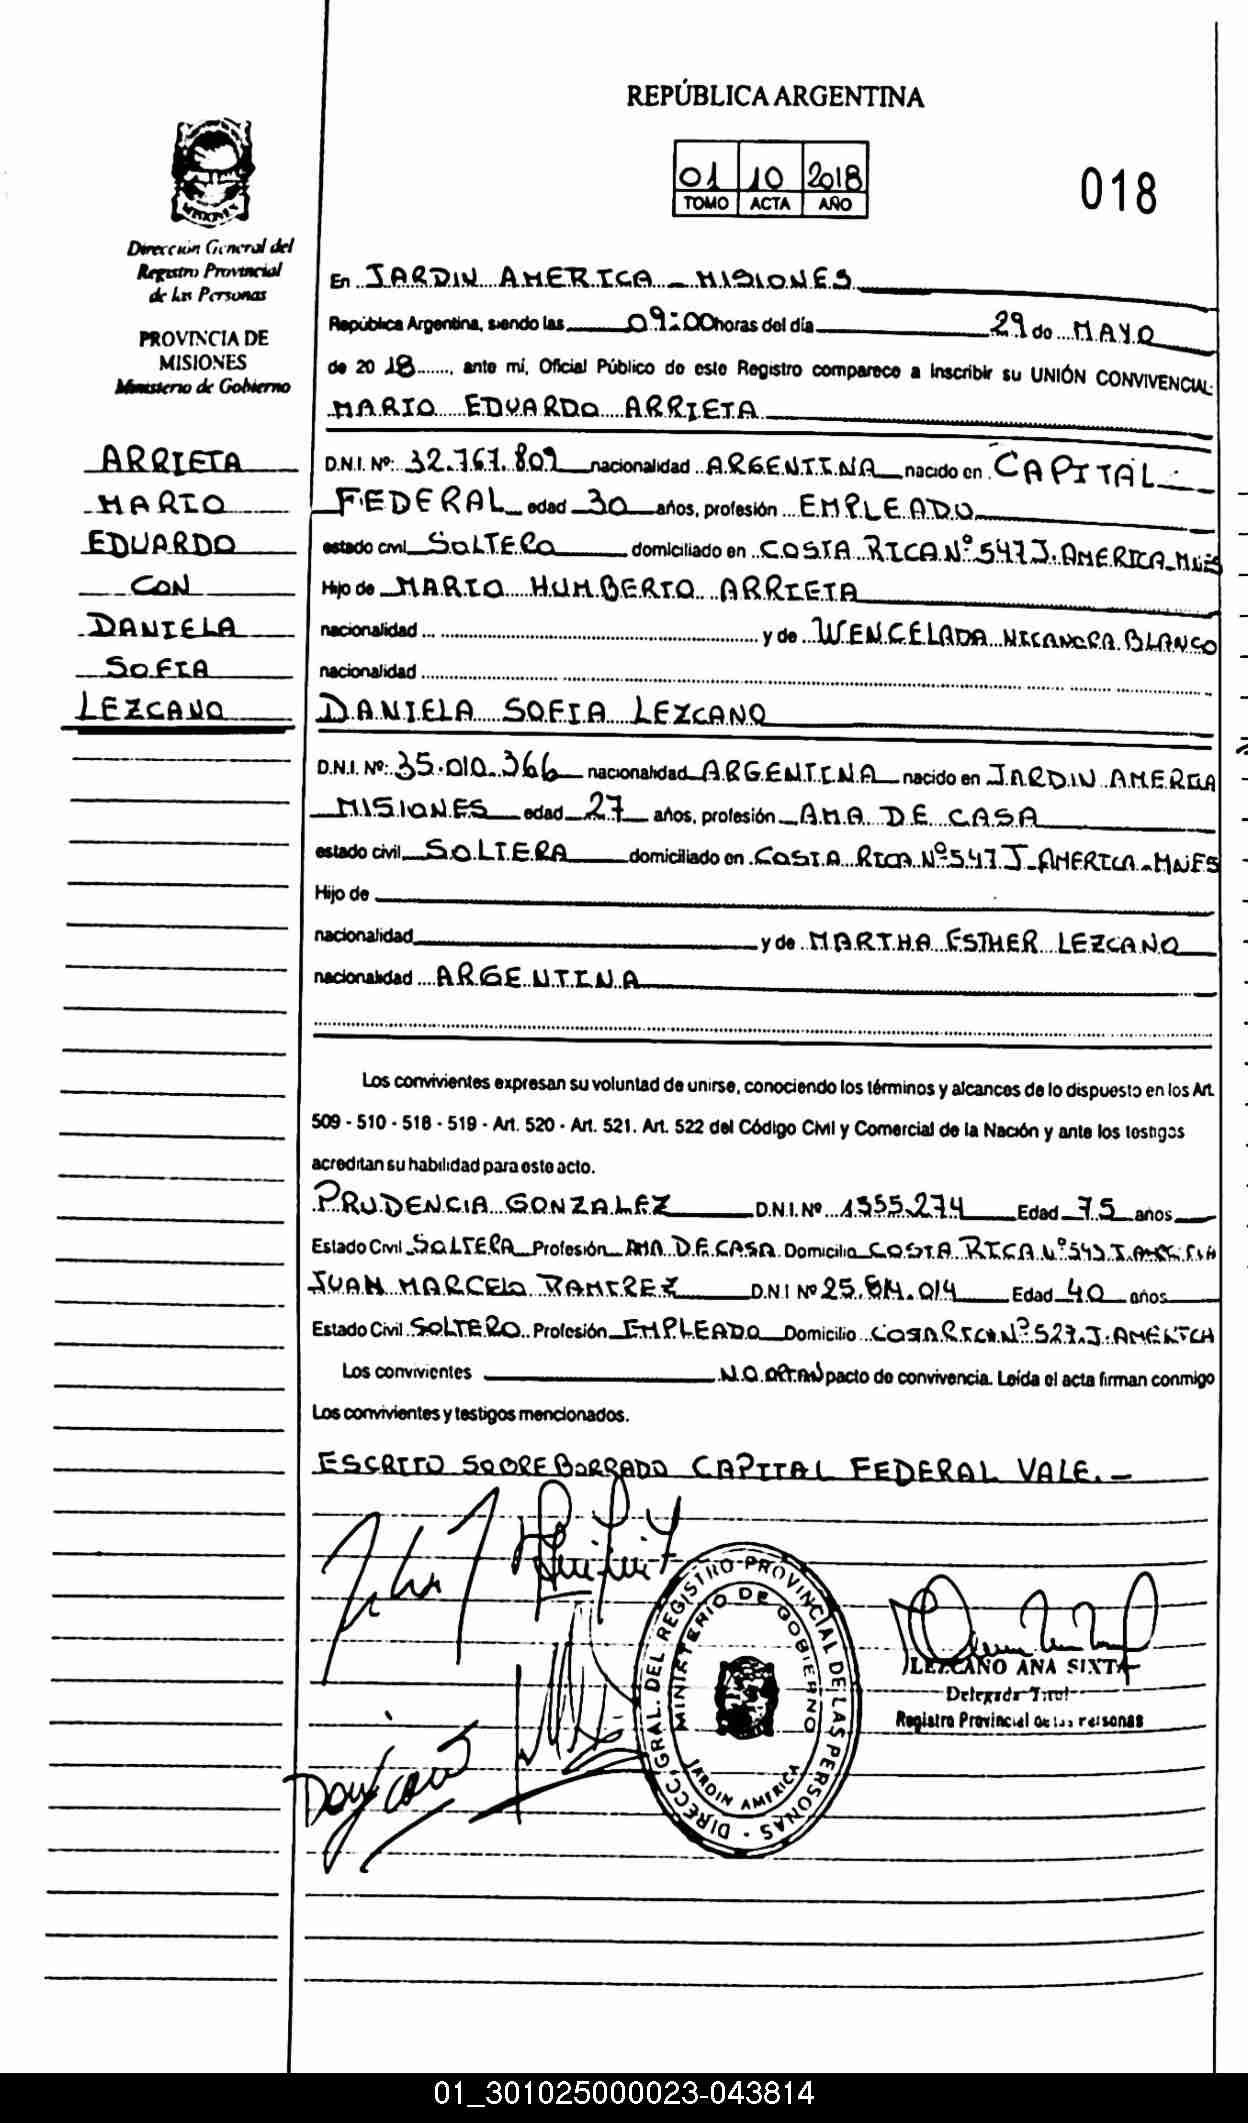 REPÚBLICA ARGENTINA
01 10 2018
TOMO ACTA AÑO
018
MISIONES
Dirección General del
Registro Provincial
de las Personas
PROVINCIA DE
MISIONES
Ministerio de Gobierno
ARRIETA
MARIO
EDUARDO
CON
DANIELA
SOFIA
LEZCANO
En JARDIN AMERICA - MISIONES
República Argentina, siendo las 09:00 horas del día 29 de MAYO
de 20 18, ante mí, Oficial Público de este Registro comparece a inscribir su UNIÓN CONVIVENCIAL:
MARIO EDUARDO ARRIETA
D.N.I. Nº: 32.767.809 nacionalidad ARGENTINA nacido en CAPITAL
FEDERAL edad 30 años, profesión EMPLEADO
estado civil SOLTERO domiciliado en COSTA RICA Nº 547 J. AMERICA - MNES
Hijo de MARIO HUMBERTO ARRIETA
nacionalidad y de WENCELADA NICANORA BLANCO
nacionalidad
DANIELA SOFIA LEZCANO
D.N.I. Nº: 35.010.366 nacionalidad ARGENTINA nacido en JARDIN AMERICA
MISIONES edad 27 años, profesión AMA DE CASA
estado civil SOLTERA domiciliado en COSTA RICA Nº 547 J. AMERICA - MNES
Hijo de
nacionalidad y de MARTHA ESTHER LEZCANO
nacionalidad ARGENTINA
Los convivientes expresan su voluntad de unirse, conociendo los términos y alcances de lo dispuesto en los Art.
509 - 510 - 518 - 519 - Art. 520 - Art. 521. Art. 522 del Código Civil y Comercial de la Nación y ante los testigos
acreditan su habilidad para este acto.
PRUDENCIA GONZALEZ D.N.I. Nº 1555.274 Edad 75 años
Estado Civil SOLTERA Profesión AMA DE CASA Domicilio COSTA RICA Nº J. AMERICA
JUAN MARCELO RAMIREZ D.N.I Nº 25.814.014 Edad 40 años
Estado Civil SOLTERO Profesión EMPLEADO Domicilio COSTA RICA Nº 527 J. AMERICA
Los convivientes NO OPTAN pacto de convivencia. Leída el acta firman conmigo
Los convivientes y testigos mencionados.
ESCRITO SOBRE BORRADO CAPITAL FEDERAL VALE. -
DIRECC. GRAL. DEL REGISTRO PROVINCIAL DE LAS PERSONAS
MINISTERIO DE GOBIERNO
JARDIN AMERICA
LEZCANO ANA SIXTA
Delegada Titul
Registro Provincial de las Personas
01_301025000023-043814